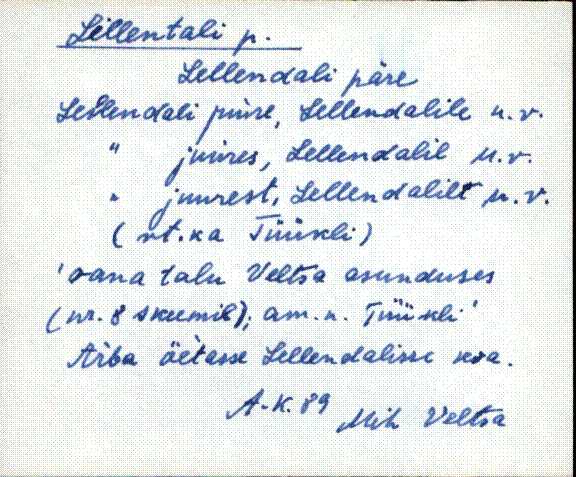 Lillentali p.
Lellendali päre
Lellendali juure, Lellendalile u. v.
" juures, Lellendalil u. v.
" juurest, Lellendalilt u. v.
( vt. ka Tüükli )
'vana talu Veltsa asunduses
(nr. 8 skeemil); am. n. Tüükli'
Arba öetasse Lellendalisse kva.
A-K. 89
Mih Veltsa